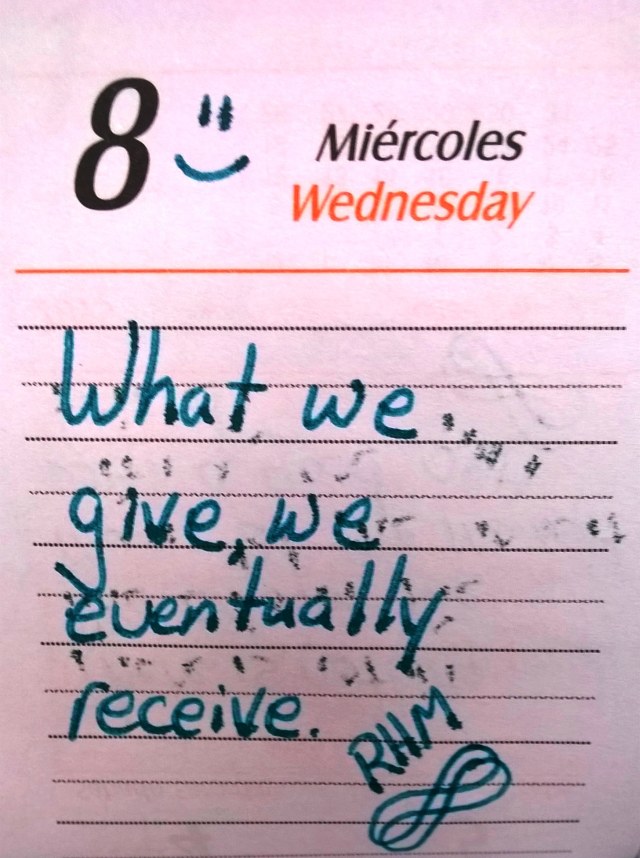 8 Miércoles
Wednesday
What we
give, we
eventually
receive.
RHM